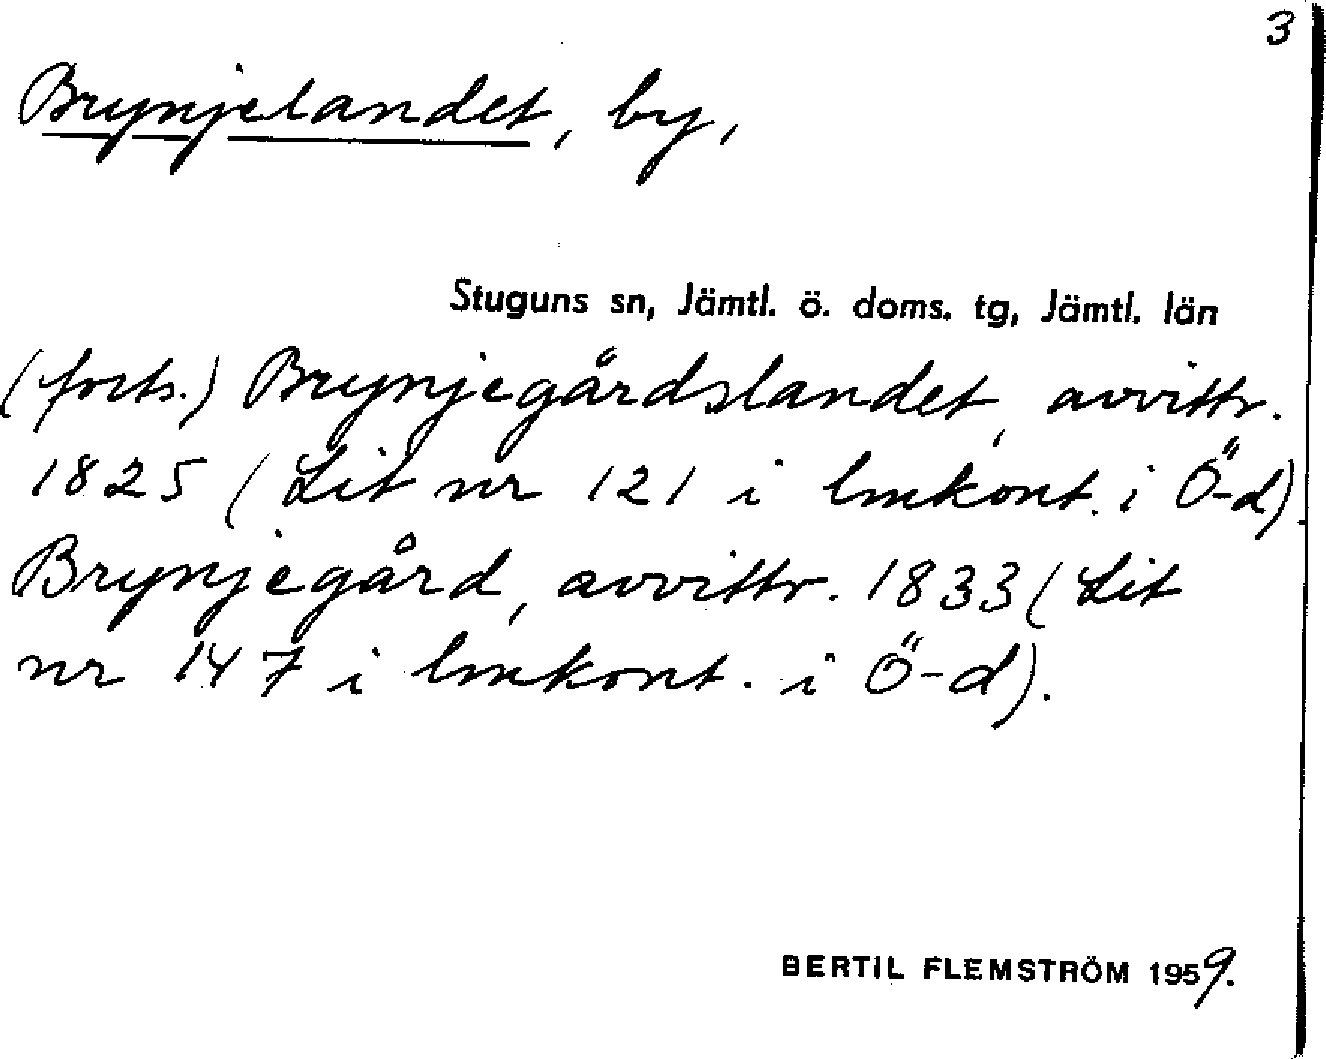 3
Brynjelandet, by,
Stuguns sn, Jämtl. ö. doms. tg, Jämtl. län
(forts.) Brynjegårdslandet, avvittr.
1825 (Lit nr 121 i lmkont. i Ö-d).
Brynjegård, avvittr. 1833 (Lit
nr 147 i lmkont. i Ö-d).
BERTIL FLEMSTRÖM 1959.